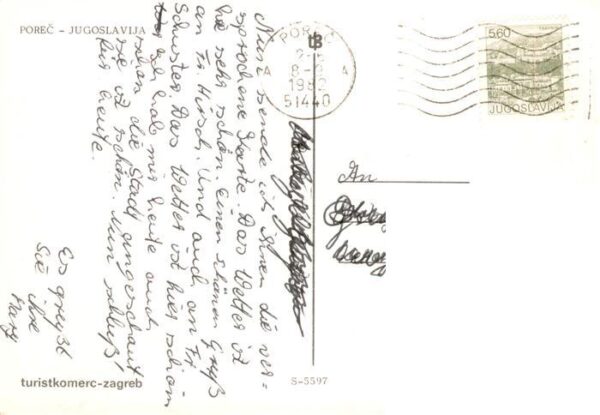 POREČ – JUGOSLAVIJA
Nun sende ich Ihnen die ver-
sprochene Karte. Das Wetter ist
hie sehr schön. einen schönen Gruß
an Fr. Hirsch. Und auch an Fr
Schuster. Das Wetter ist hier schön
Ich hab mir heute auch
schon die Stadt angeschaut
sie ist schön. Nun schluß!
für heute.
Es grüßt
Sie
ihre
turistkomerc-zagreb
POREČ
51440
5,60
JUGOSLAVIJA
An
S-5597